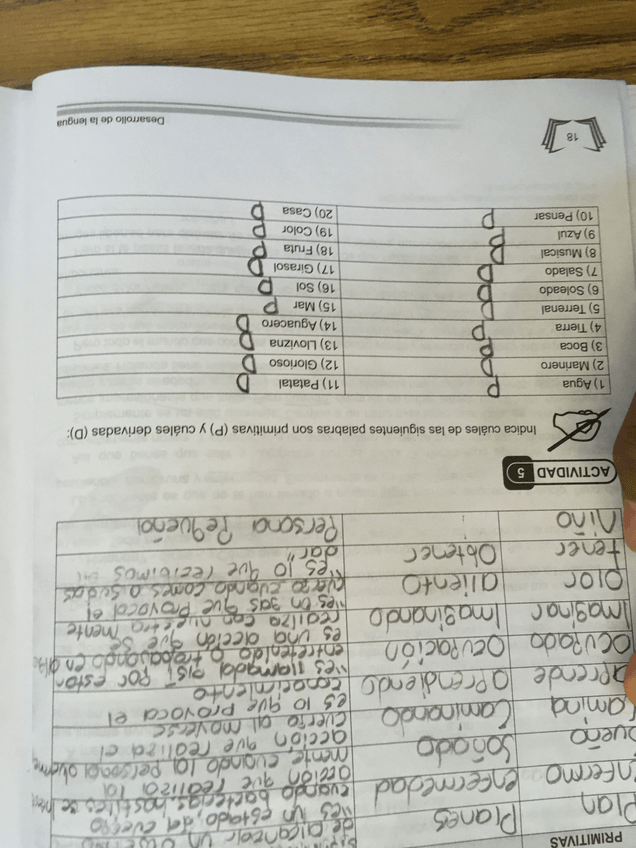 PRIMITIVAS
de alcanzar un
Plan Planes
"es un estado del cuerpo
cuando bacterias hostiles se
Enfermo enfermedad
acción que realiza la
mente cuando la persona duerme
Sueño Soñado
acción que realiza el
cuerpo al moverse
Camina Caminando
es lo que provoca el
conocimiento
aprende aprendiendo
"es llamada así, por estar
entretenido o trabajando en algo
Ocupado Ocupación
es una acción que se
realiza con nuestra mente
Imaginar Imaginando
"es un gas que provoca el
cuerpo cuando comes o sudas
Olor aliento
"es lo que recibimos
dar"
tener Obtener
Niño Persona Pequeña
ACTIVIDAD 5
Indica cuáles de las siguientes palabras son primitivas (P) y cuáles derivadas (D):
1) Agua P 11) Patatal D
2) Marinero D 12) Glorioso D
3) Boca P 13) Llovizna D
4) Tierra P 14) Aguacero D
5) Terrenal D 15) Mar P
6) Soleado D 16) Sol P
7) Salado D 17) Girasol D
8) Musical D 18) Fruta P
9) Azul P 19) Color P
10) Pensar P 20) Casa P
18
Desarrollo de la lengua